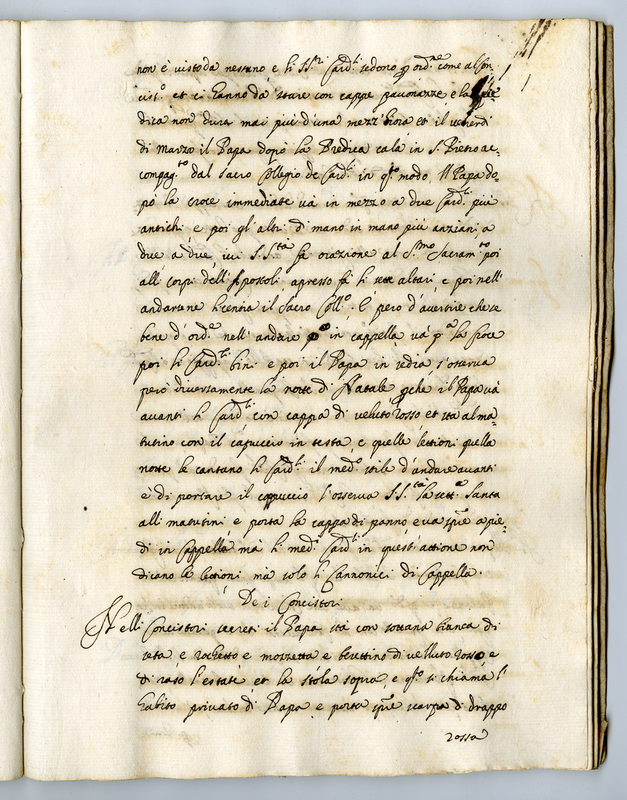 non è visto da nessuno, e li SS.ri Card.li sedono p ord.ne come al Con
cist.o et ci hanno da stare con cappe pavonazze, e la pre
dica non dura mai più d'una mezz'hora et il venerdi
di marzo il Papa dopò la Predica cala in S. Pietro ac=
compag.to dal Sacro Collegio de Card.li in q.to modo. Il Papa do=
pò la croce immediate va in mezzo a due Card.li più
antichi, e poi gli altri di mano in mano più anziani a
due a due, ivi S. S.tà fa orazione al S.mo Sacram.to poi
alli corpi delli Apostoli, apresso fà li sette altari, e poi nell'
andarsene licentia il Sacro Coll.o. È però d'avertire che se
bene d'ord.o nell'andare in cappella và p.a la Croce
poi li Card.li bini e poi il Papa in sedia s'osserva
però diversamente la notte di Natale pche il Papa và
avanti li Card.li con cappa di veluto rosso et stà al ma=
tutino con il capuccio in testa, e quelle lettioni quella
notte le cantano li Card.li il med.o stile d'andare avanti
è di portare il cappuccio l'osserva S. S.tà la sett.a Santa
alli matutini e porta la cappa di panno, e va spre a pie=
di in Cappella, mà li med.i Card.li in questi attione non
dicano le lettioni mà solo li Cannonici di Cappella.
De i Concistori
Nelli Concistori secreti il Papa stà con sottana bianca di
seta, e rochetto e mozzetta e berettino di velluto rosso, e
di raso l'estate, et la stola sopra, e q.to si chiama l'
habito privato di Papa, e porta spre scarpa di drappo
rossa